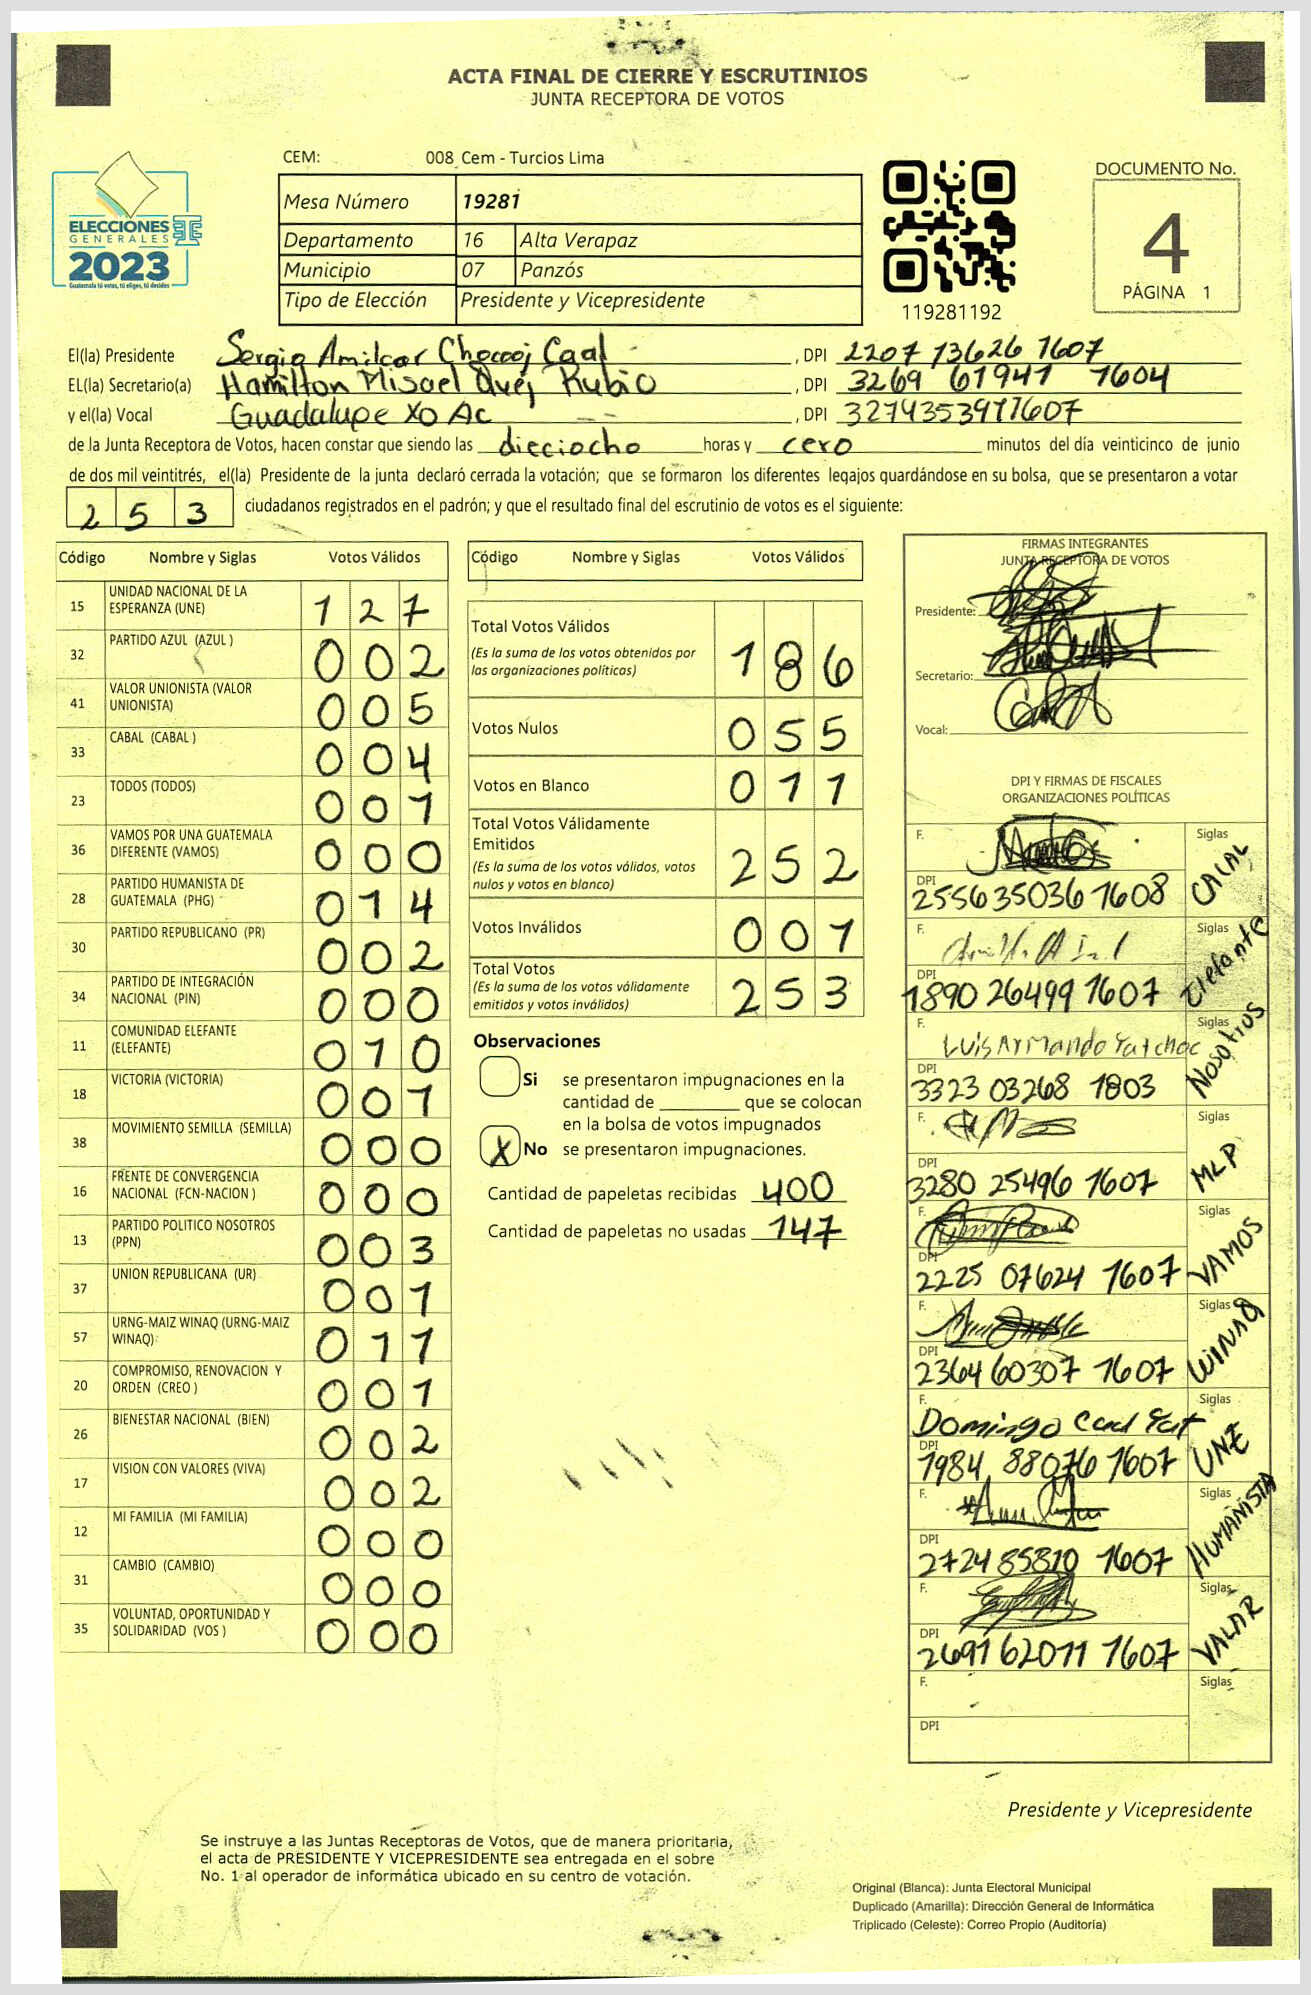 ACTA FINAL DE CIERRE Y ESCRUTINIOS
JUNTA RECEPTORA DE VOTOS
CEM: 008 Cem - Turcios Lima
ELECCIONES
GENERALES
2023
Guatemala tú votas, tú eliges, tú decides
Mesa Número 19281
Departamento 16 Alta Verapaz
Municipio 07 Panzós
Tipo de Elección Presidente y Vicepresidente
119281192
DOCUMENTO No.
4
PÁGINA 1
El(la) Presidente Sergio Amilcar Chocooj Caal, DPI 2207 13626 1607
EL(la) Secretario(a) Hamilton Misael Quej Rubio, DPI 3269 61941 1604
y el(la) Vocal Guadalupe Xo Ac, DPI 3274353971607
de la Junta Receptora de Votos, hacen constar que siendo las dieciocho horas y cero minutos del día veinticinco de junio
de dos mil veintitrés, el(la) Presidente de la junta declaró cerrada la votación; que se formaron los diferentes legajos guardándose en su bolsa, que se presentaron a votar
253 ciudadanos registrados en el padrón; y que el resultado final del escrutinio de votos es el siguiente:
Código Nombre y Siglas Votos Válidos
15 UNIDAD NACIONAL DE LA ESPERANZA (UNE) 127
32 PARTIDO AZUL (AZUL ) 002
41 VALOR UNIONISTA (VALOR UNIONISTA) 005
33 CABAL (CABAL ) 004
23 TODOS (TODOS) 001
36 VAMOS POR UNA GUATEMALA DIFERENTE (VAMOS) 000
28 PARTIDO HUMANISTA DE GUATEMALA (PHG) 014
30 PARTIDO REPUBLICANO (PR) 002
34 PARTIDO DE INTEGRACIÓN NACIONAL (PIN) 000
11 COMUNIDAD ELEFANTE (ELEFANTE) 010
18 VICTORIA (VICTORIA) 001
38 MOVIMIENTO SEMILLA (SEMILLA) 000
16 FRENTE DE CONVERGENCIA NACIONAL (FCN-NACION ) 000
13 PARTIDO POLITICO NOSOTROS (PPN) 003
37 UNION REPUBLICANA (UR) 001
57 URNG-MAIZ WINAQ (URNG-MAIZ WINAQ) 011
20 COMPROMISO, RENOVACION Y ORDEN (CREO ) 001
26 BIENESTAR NACIONAL (BIEN) 002
17 VISION CON VALORES (VIVA) 002
12 MI FAMILIA (MI FAMILIA) 000
31 CAMBIO (CAMBIO) 000
35 VOLUNTAD, OPORTUNIDAD Y SOLIDARIDAD (VOS ) 000
Código Nombre y Siglas Votos Válidos
Total Votos Válidos 186
(Es la suma de los votos obtenidos por
las organizaciones políticas)
Votos Nulos 055
Votos en Blanco 011
Total Votos Válidamente
Emitidos 252
(Es la suma de los votos válidos, votos
nulos y votos en blanco)
Votos Inválidos 001
Total Votos 253
(Es la suma de los votos válidamente
emitidos y votos inválidos)
Observaciones
Si se presentaron impugnaciones en la
cantidad de ________ que se colocan
en la bolsa de votos impugnados
X No se presentaron impugnaciones.
Cantidad de papeletas recibidas 400
Cantidad de papeletas no usadas 147
FIRMAS INTEGRANTES
JUNTA RECEPTORA DE VOTOS
Presidente:
Secretario:
Vocal:
DPI Y FIRMAS DE FISCALES
ORGANIZACIONES POLÍTICAS
F. Siglas
DPI 255635036 1608 CACAL
F. Siglas
DPI 1890 26499 1607 Elefante
F. Luis Armando Siglas
DPI 3323 03268 1803 Nosotros
F. Siglas
DPI 3280 25496 1607 MLP
F. Siglas
DPI 2225 07624 1607 VAMOS
F. Siglas
DPI 2364 60307 1607 WINAQ
F. Domingo Siglas
DPI 1984 88076 1607 UNE
F. Siglas
DPI 2724 85810 1607 HUMANISTA
F. Siglas
DPI 2691 62011 1607 VALAR
F. Siglas
DPI
Presidente y Vicepresidente
Se instruye a las Juntas Receptoras de Votos, que de manera prioritaria,
el acta de PRESIDENTE Y VICEPRESIDENTE sea entregada en el sobre
No. 1 al operador de informática ubicado en su centro de votación.
Original (Blanca): Junta Electoral Municipal
Duplicado (Amarilla): Dirección General de Informática
Triplicado (Celeste): Correo Propio (Auditoría)